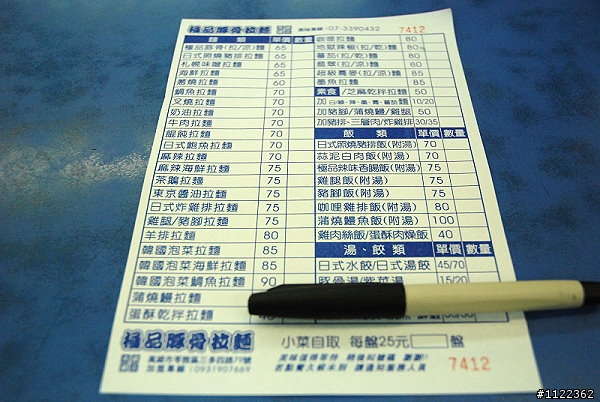 極品豚骨拉麵 07-3390432 7412
麵類 單價 數量
極品豚骨(拉/涼)麵 65
日式照燒豬排拉麵 65
札幌味噌拉麵 65
海鮮拉麵 65
蔥燒拉麵 60
鯛魚拉麵 70
叉燒拉麵 70
奶油拉麵 70
牛肉拉麵 70
餛飩拉麵 70
日式鮑魚拉麵 70
麻辣拉麵 70
麻辣海鮮拉麵 75
茶鵝拉麵 75
東京醬油拉麵 75
日式炸雞排拉麵 75
雞腿/豬腳拉麵 75
羊排拉麵 80
韓國泡菜拉麵 85
韓國泡菜海鮮拉麵 85
韓國泡菜鯛魚拉麵 90
蒲燒鰻拉麵
蛋酥乾拌拉麵
咖哩拉麵 80
地獄辣椒(拉/乾)麵 80
番茄(拉/乾)麵 80
翡翠(拉/涼)麵 80
超級蕎麥(拉/涼)麵 85
墨魚拉麵 85
素食/芝麻乾拌拉麵 50
加白/綠、辣、墨、蕎、番茄麵 10/20
加豬腳/蒲燒鰻/雞腿 50
加豬排、三層肉/炸雞排 30/35
飯類 單價 數量
日式照燒豬排飯(附湯) 70
蒜泥白肉飯(附湯) 70
極品辣味香腸飯(附湯) 75
雞腿飯(附湯) 75
豬腳飯(附湯) 75
咖哩雞排飯(附湯) 80
蒲燒鰻魚飯(附湯) 100
雞肉絲飯/蛋酥肉燥飯 40
湯、餃類 單價 數量
日式水餃/日式湯餃 45/70
豚骨湯/紫菜湯 15/20
極品豚骨拉麵 小菜自取 每盤25元 盤
高雄市苓雅區三多四路79號
加盟專線：0931907669
7412
#1122362